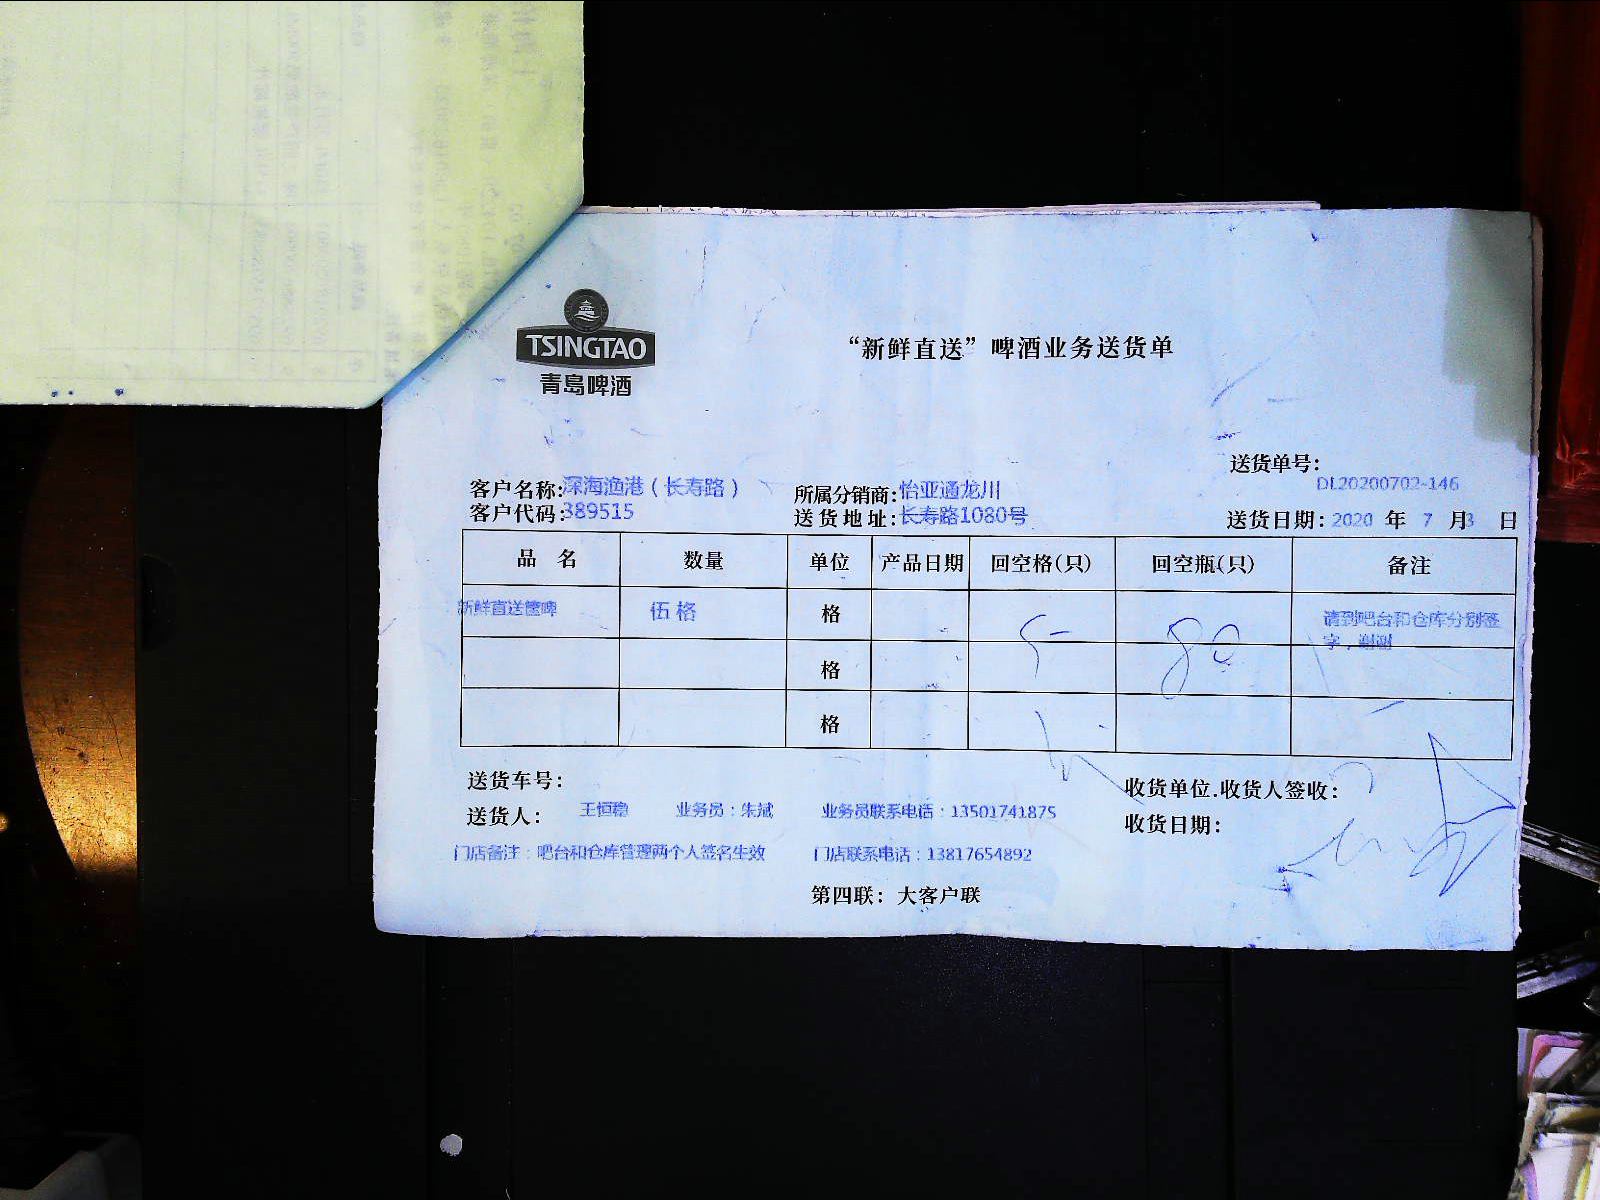 TSINGTAO
青岛啤酒
“新鲜直送”啤酒业务送货单
送货单号:
DL20200702-146
客户名称:深海渔港（长寿路） 所属分销商:怡亚通龙川
客户代码:389515 送货地址:长寿路1080号 送货日期:2020 年 7 月3 日
品 名 数量 单位 产品日期 回空格(只) 回空瓶(只) 备注
新鲜直送 伍格 格 5 80 请到吧台和仓库分别签
字，谢谢
格
格
送货车号: 收货单位.收货人签收:
送货人: 王恒稳 业务员：朱斌 业务员联系电话：13501741875 收货日期:
门店备注：吧台和仓库管理两个人签名生效 门店联系电话：13817654892
第四联: 大客户联